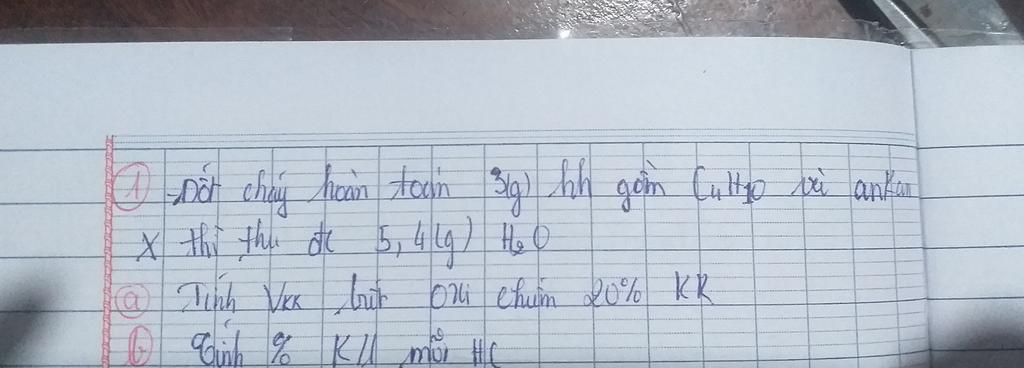 ① Đốt cháy hoàn toàn 3(g) hh gồm C4H10 và ankan
X thì thu đc 5,4(g) H2O
ⓐ Tính VKK biết oxi chiếm 20% KK
ⓑ Tính % KL mỗi HC